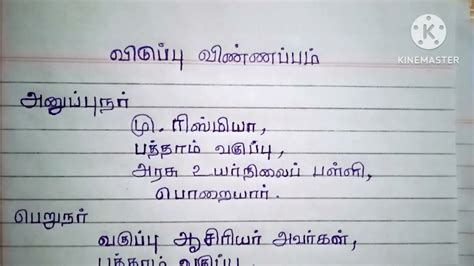 KINEMASTER
விடுப்பு விண்ணப்பம்
அனுப்புநர்
மு. ரிஸ்மியா,
பத்தாம் வகுப்பு,
அரசு உயர்நிலைப் பள்ளி,
பொறையார்.
பெறுநர்
வகுப்பு ஆசிரியர் அவர்கள்,
பத்தாம் வகுப்பு,